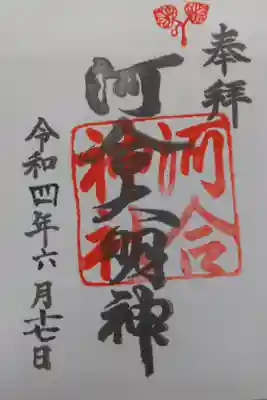 奉拝
河合大明神
河合
神社
令和四年六月十七日